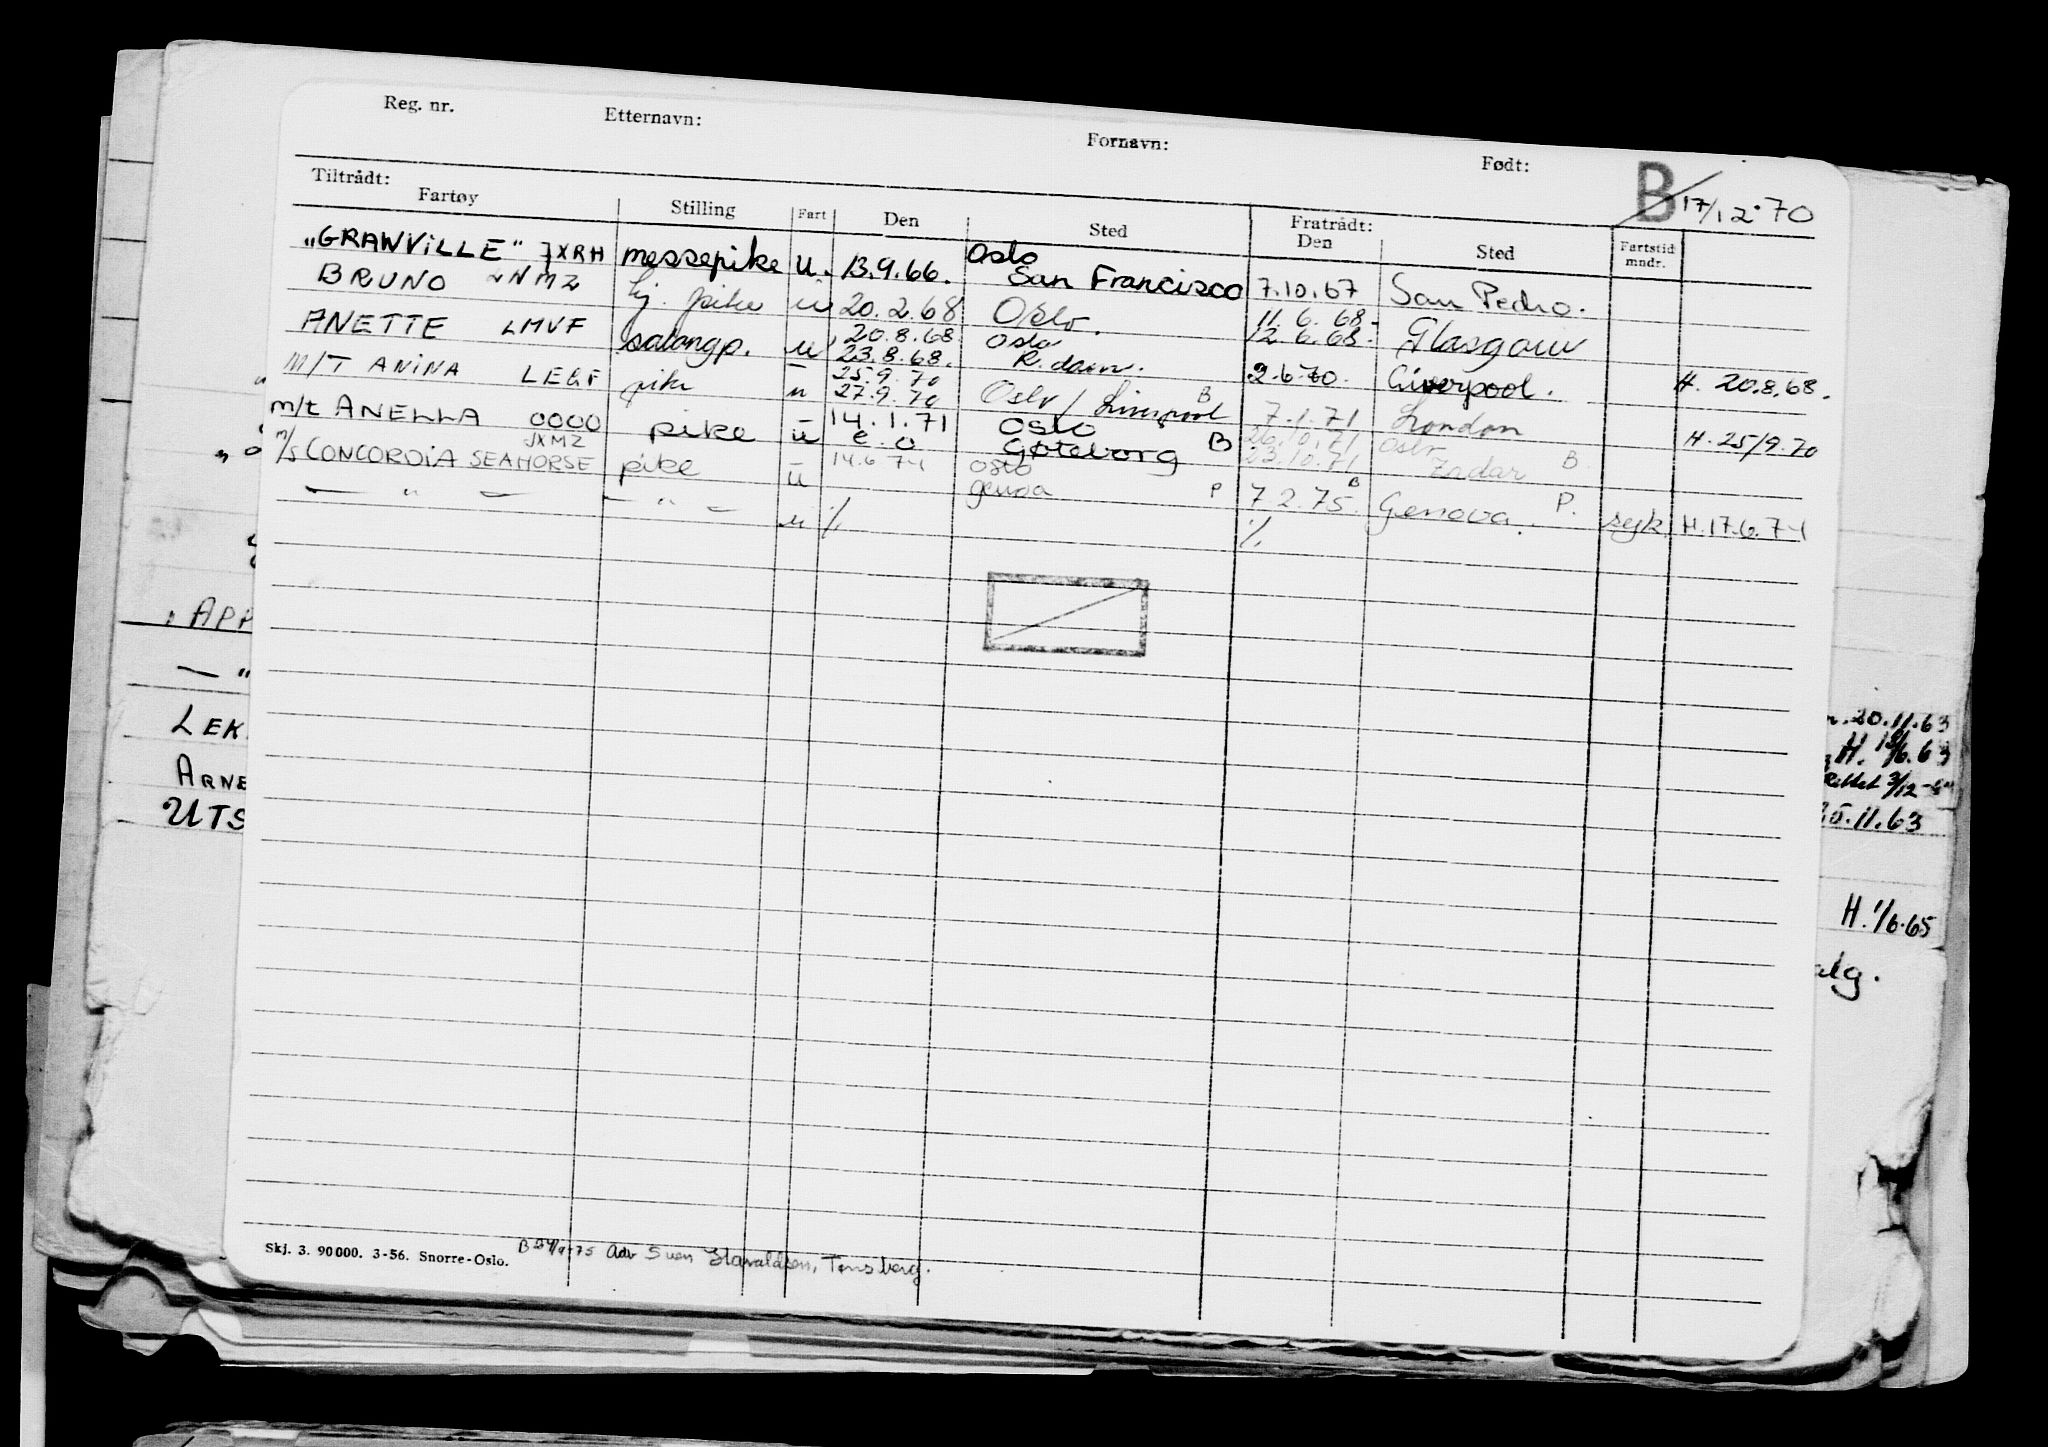 Reg. nr. Etternavn: Fornavn: Født: B 17/12.70
Tiltrådt: Fartøy Stilling Fart Den Sted Fratrådt: Den Sted Fartstid mndr.
"GRANVILLE" JXRH messepike u. 13.9.66. Oslo San Francisco 7.10.67 San Pedro.
BRUNO LNMZ pike u 20.2.68 Oslo. 11.6.68- 12.6.68. Glasgow
ANETTE LMVF salongp. u 20.8.68 23.8.68. Oslo R.dam. 2.6.70. Liverpool. H. 20.8.68.
M/T ANINA LEGF pike u 25.9.70 27.9.70 Oslo / Liverpool B 7.1.71 London H. 25/9.70
m/t ANELLA 0000 pike u 14.1.71 e.o Oslo Gøteborg B 26.10.71 23.10.71 Oslo Zadar B
m/s CONCORDIA SEAHORSE JXMZ pike u 14.6 74 Oslo genoa P 7.2.75. B Genova. P. syk H.17.6.74
— " — — " — u % %
: APP
— "
LEK
ARNE
UTS
20.11.63
H. 18/6.63
Rettet 3/12
25.11.63
H. 1/6.65
alg.
Skj. 3. 90000. 3-56. Snorre-Oslo. B 24/9-75 Adv Sven Haraldsen, Tønsberg.